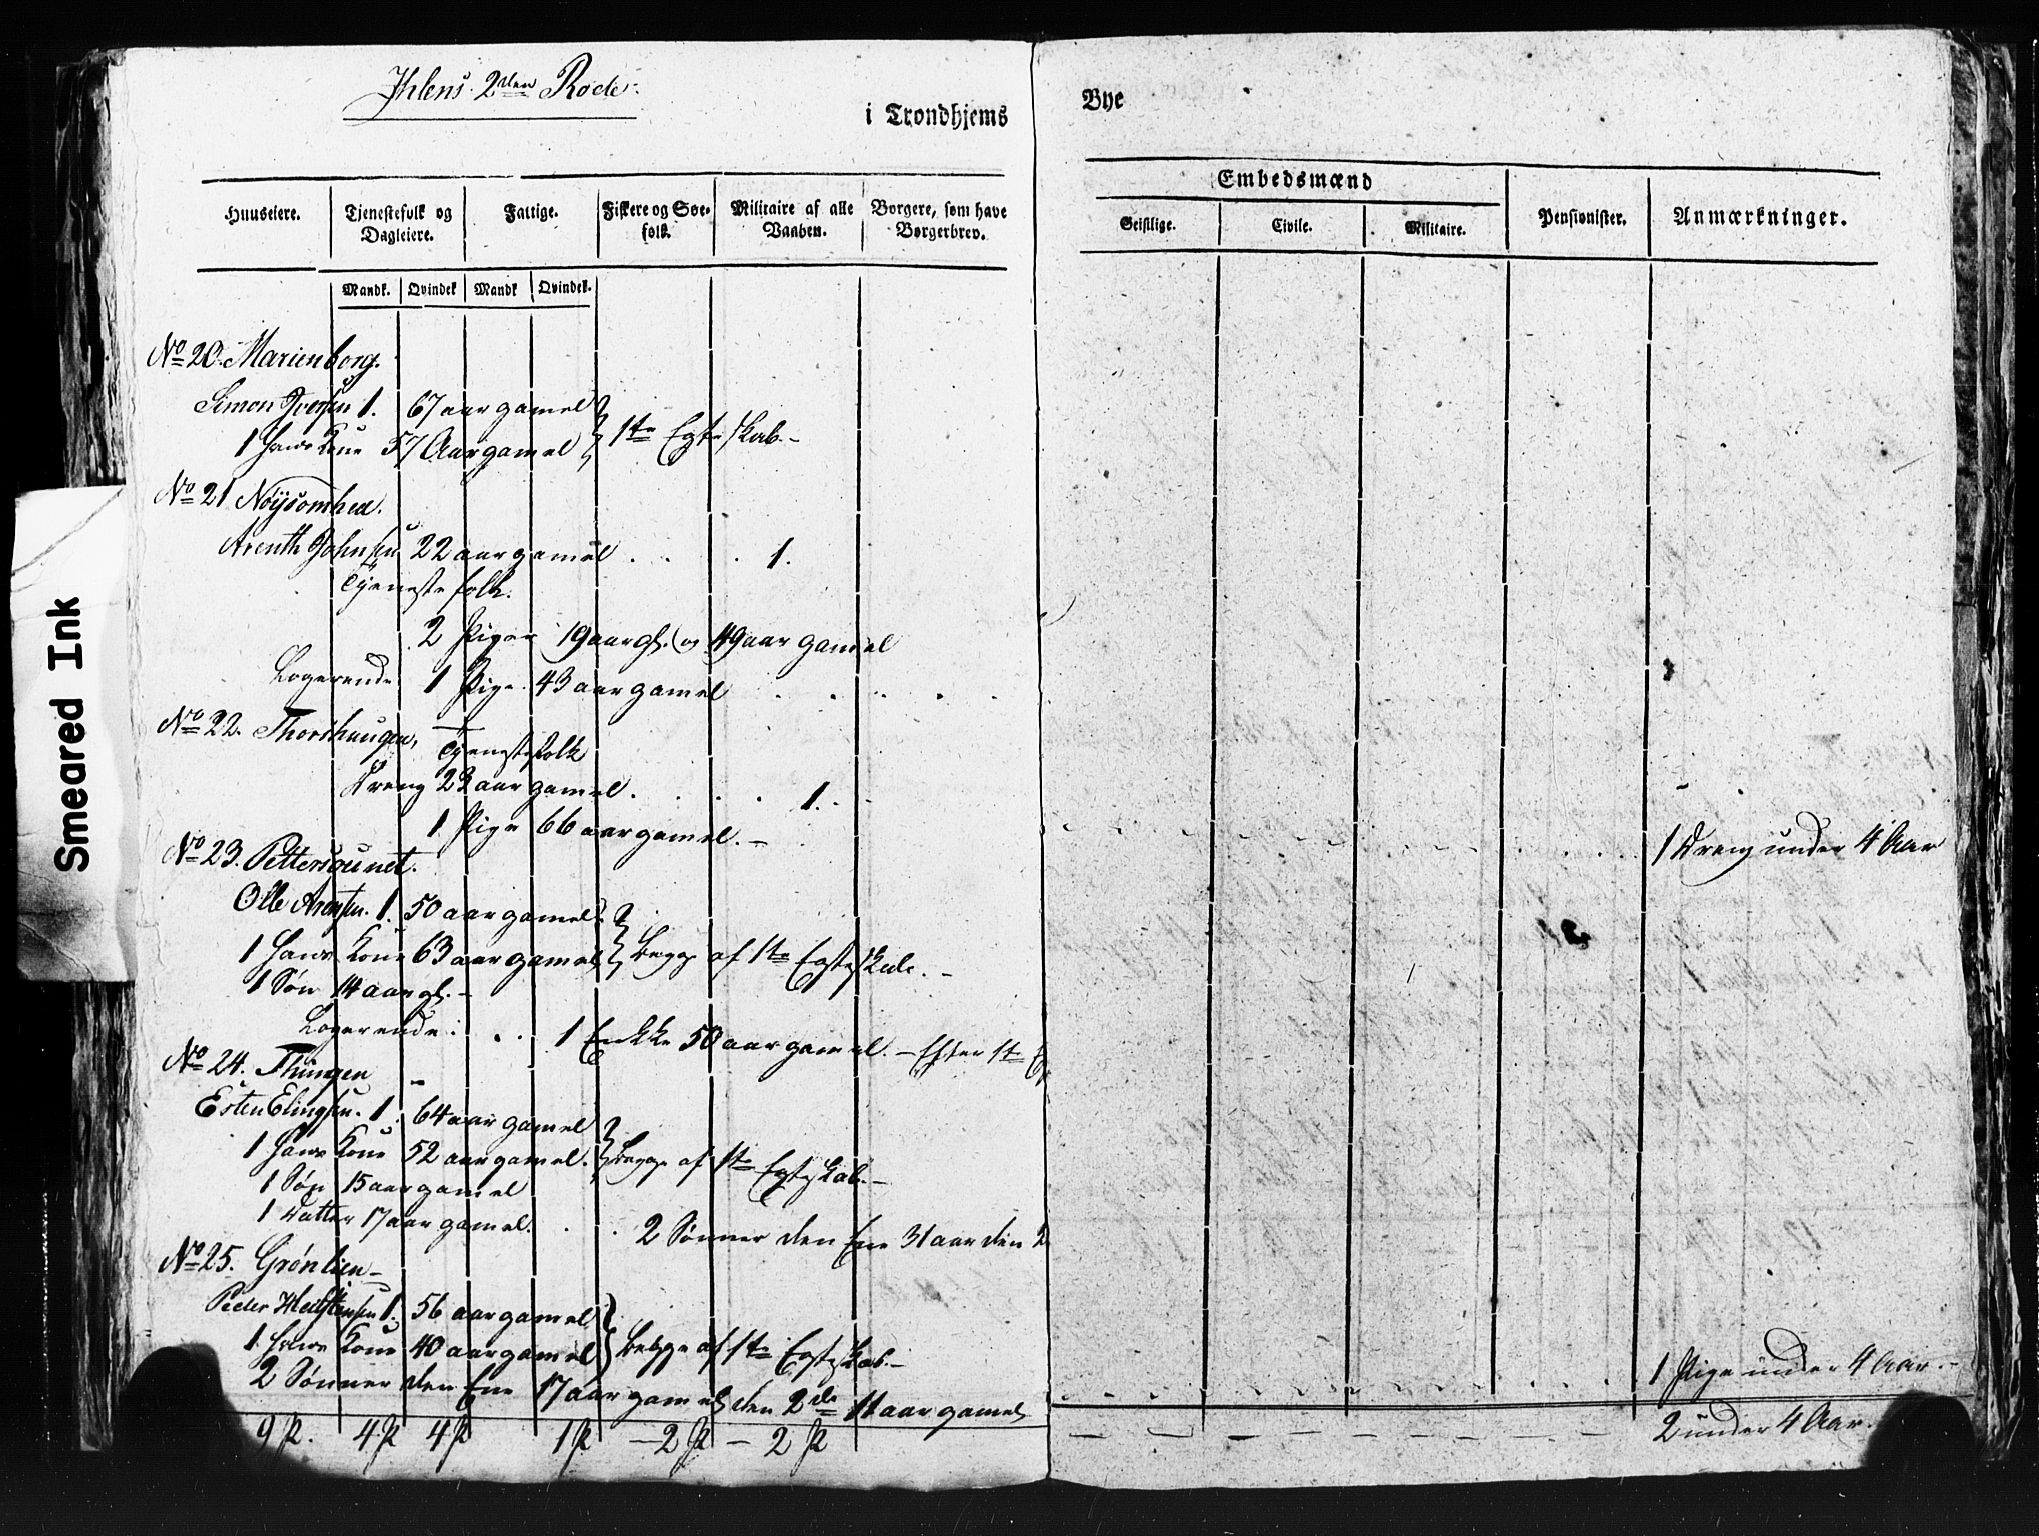 Ihlens 2den Rode
i Trondhjems
Bye
Embedsmænd
Huuseiere.
Tjenestefolk og Dagleiere.
Fattige.
Fiskere og Søe-folk.
Militaire af alle Vaaben.
Borgere, som have Borgerbrev.
Geistlige.
Civile.
Militaire.
Pensionister.
Anmærkninger.
Mandk. Qvindek Mandk Qvindek.
No 20. Marienborg.
Simon Iversen 1. 67 aar gamel
1 Hans Kone 57 Aar gamel } 1te Egteskab.-
No 21 Nøysomhed.
Arenth Johnsen 22 aar gamel . . . 1.
Tjenestefolk.
2 Piger 19 aar gl. og 49 aar gamel
Logerende 1 Pige 43 aar gamel
No 22. Thorshaugen,
Tjenestefolk
Dreng 23 aar gamel. . . . 1.
1 Pige 66 aar gamel.-
1 Dreng under 4 Aar
No 23. Pettersounet.
Olle Arentsen. 1. 50 aar gamel.
1 Hans Kone 63 aar gamel } begge af 1te Egteskab.-
1 Søn 14 aar gl.-
Logerende . . . 1 Enkke 50 aar gamel.- Efter 1te
No 24. Thüngen
Esten Elingsen. 1. 64 aar gamel
1 Hans Kone 52 aar gamel. } begge af 1te Egteskab.-
1 Søn 15 aar gamel
1 Datter 17 aar gamel. . . 2 Sønner den Ene 31 aar den 2
No 25. Grønlien-
Peder 1. 56 aar gamel
1. Hans Kone 40 aar gamel } begge af 1te Egteskab.-
2 Sønner den Ene 17 aar gamel den 2de 11 aar gamel
1 Pige under 4 Aar.-
9 P. 4 P 4 P 1 P - 2 P - 2 P
2 under 4 Aar.
Smeared Ink